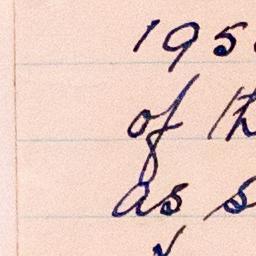 195
of th
as s